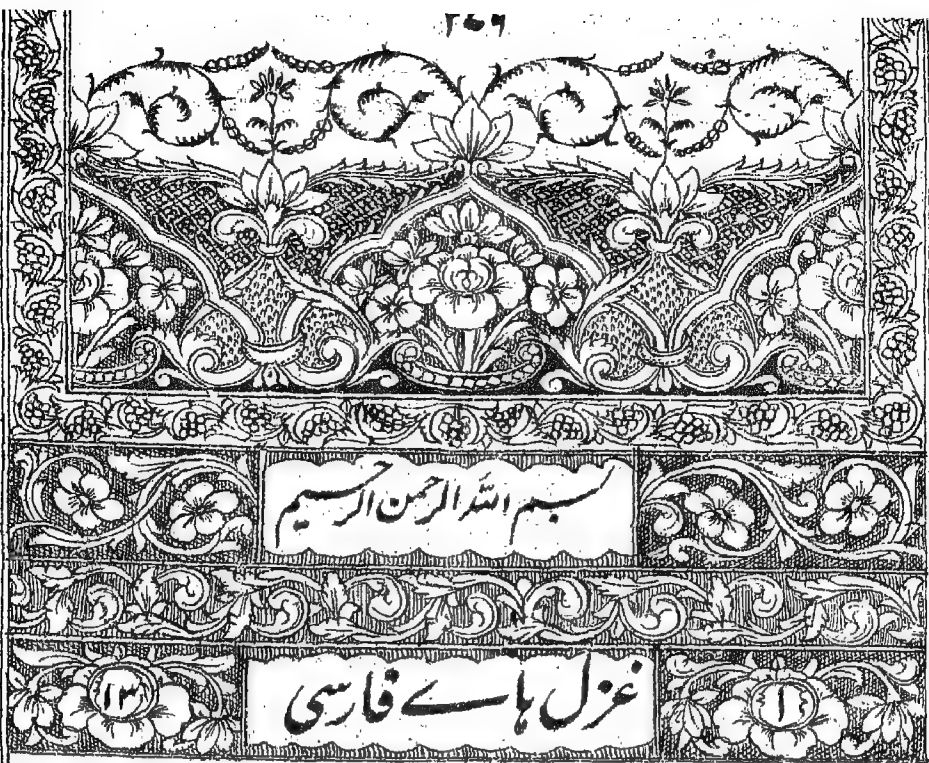 ۲۵۹
بسم الله الرحمن الرحیم
غزل هاے فارسی
۱
۱۳